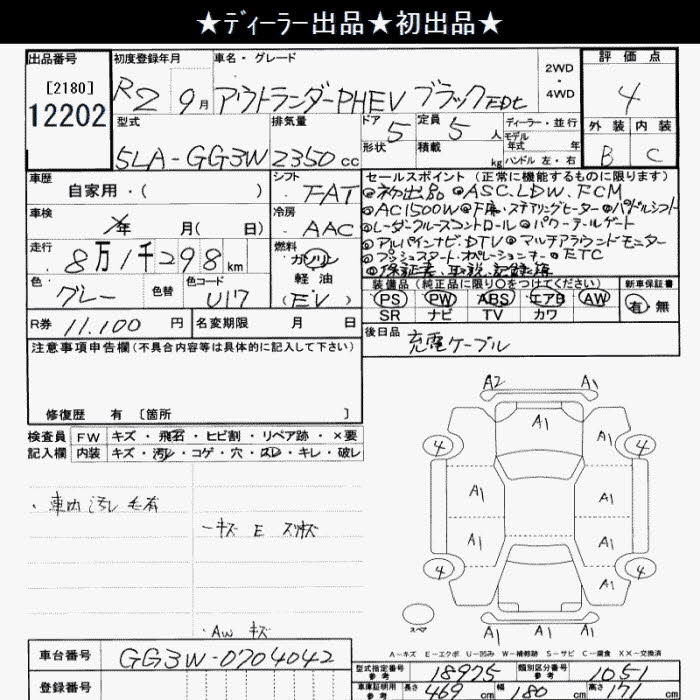 ★ディーラー出品★初出品★
出品番号
[2180]
12202
初度登録年月
R2 9月
車名・グレード
アウトランダーPHEV ブラックEDt
2WD
・
4WD
評価点
4
外装 内装
B C
型式
5LA-GG3W
排気量
2350cc
ドア 5
形状
定員 5 人
積載 kg
ディーラー・並行
モデル
年式 年
ハンドル 左・右
車歴
自家用・( )
シフト
FAT
車検
年 月( 日)
冷房
AAC
走行
8万1千298km
燃料
ガソリン
軽油
(EV)
色 グレー
色替
色コード
U17
R券 11.100 円
名変期限 月 日
セールスポイント(正常に機能するものに限ります)
◎初出品 ◎ASC.LDW.FCM
◎AC1500W◎F席・ステアリングヒーター◎パドルシフト
◎レーダークルーズコントロール◎パワーテールゲート
◎アルパインナビ.DTV◎マルチアラウンドモニター
◎プッシュスタート・オペレーションキー◎ETC
◎保証書、取説、記録簿
装備品(純正品に限り○をつけてください)
PS PW ABS エアB AW
SR ナビ TV カワ
新車保証書
有・無
後日品
充電ケーブル
注意事項申告欄(不具合内容等は具体的に記入して下さい)
修復歴 有 [箇所 ]
検査員 FW キズ・飛石・ヒビ割・リペア跡・×要
記入欄 内装 キズ・汚レ・コゲ・穴・スレ・キレ・破レ
・車内汚レ毛有
ーキズ E スリキズ
・AW キズ
A2 A1
A1
4 A1 A1 4
A1 A1
A1 A1
4 A1 4
A1 A1
スペア
A-キズ E-エクボ U-凹み W-補修跡 S-サビ C-腐食 XX-交換済
車台番号 GG3W-0704042
登録番号
型式指定番号
参考
18925
類別区分番号
参考
1051
車庫証明用
参考
長さ 469 cm 幅 180 cm 高さ 171 cm